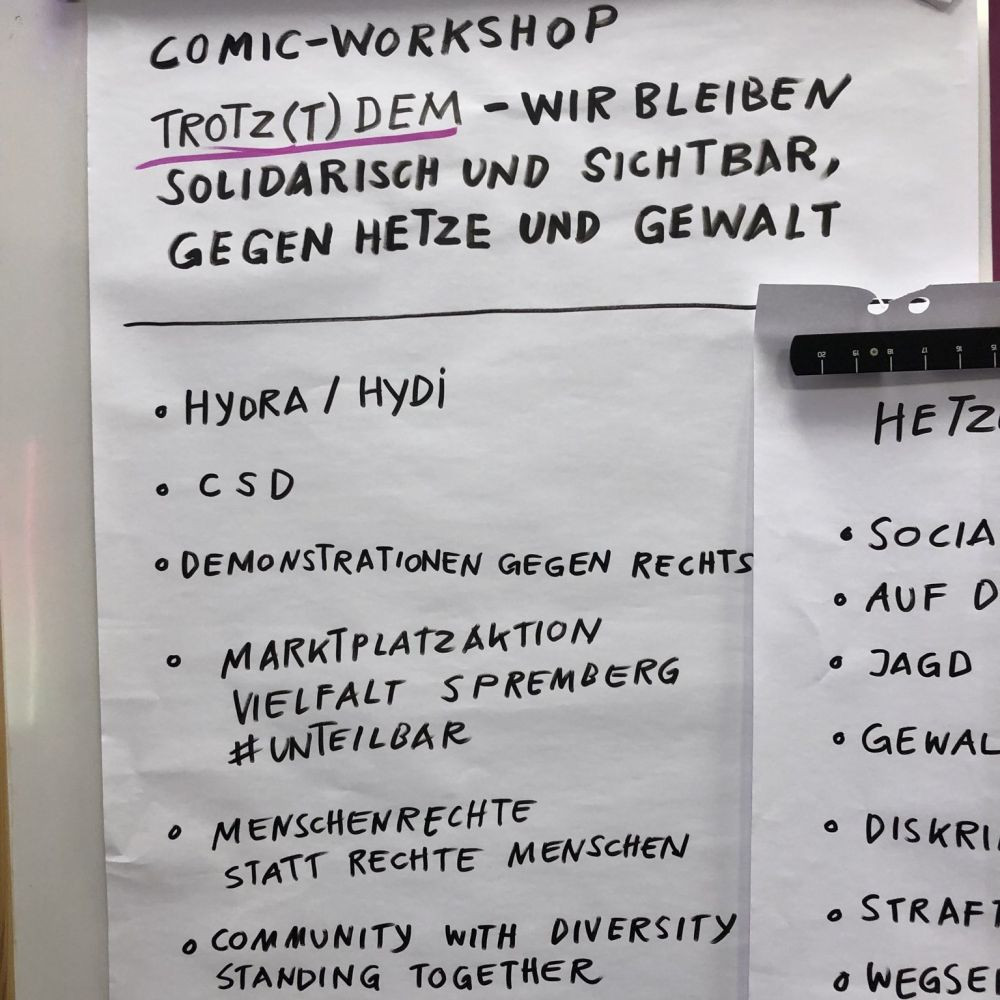 COMIC-WORKSHOP
TROTZ(T)DEM - WIR BLEIBEN
SOLIDARISCH UND SICHTBAR,
GEGEN HETZE UND GEWALT
• HYDRA / HYDi
• CSD
• DEMONSTRATIONEN GEGEN RECHTS
• MARKTPLATZAKTION
VIELFALT SPREMBERG
#UNTEILBAR
• MENSCHENRECHTE
STATT RECHTE MENSCHEN
• COMMUNITY WITH DIVERSITY
STANDING TOGETHER
20 19 18 17 16 15
• AUF
• JAGD